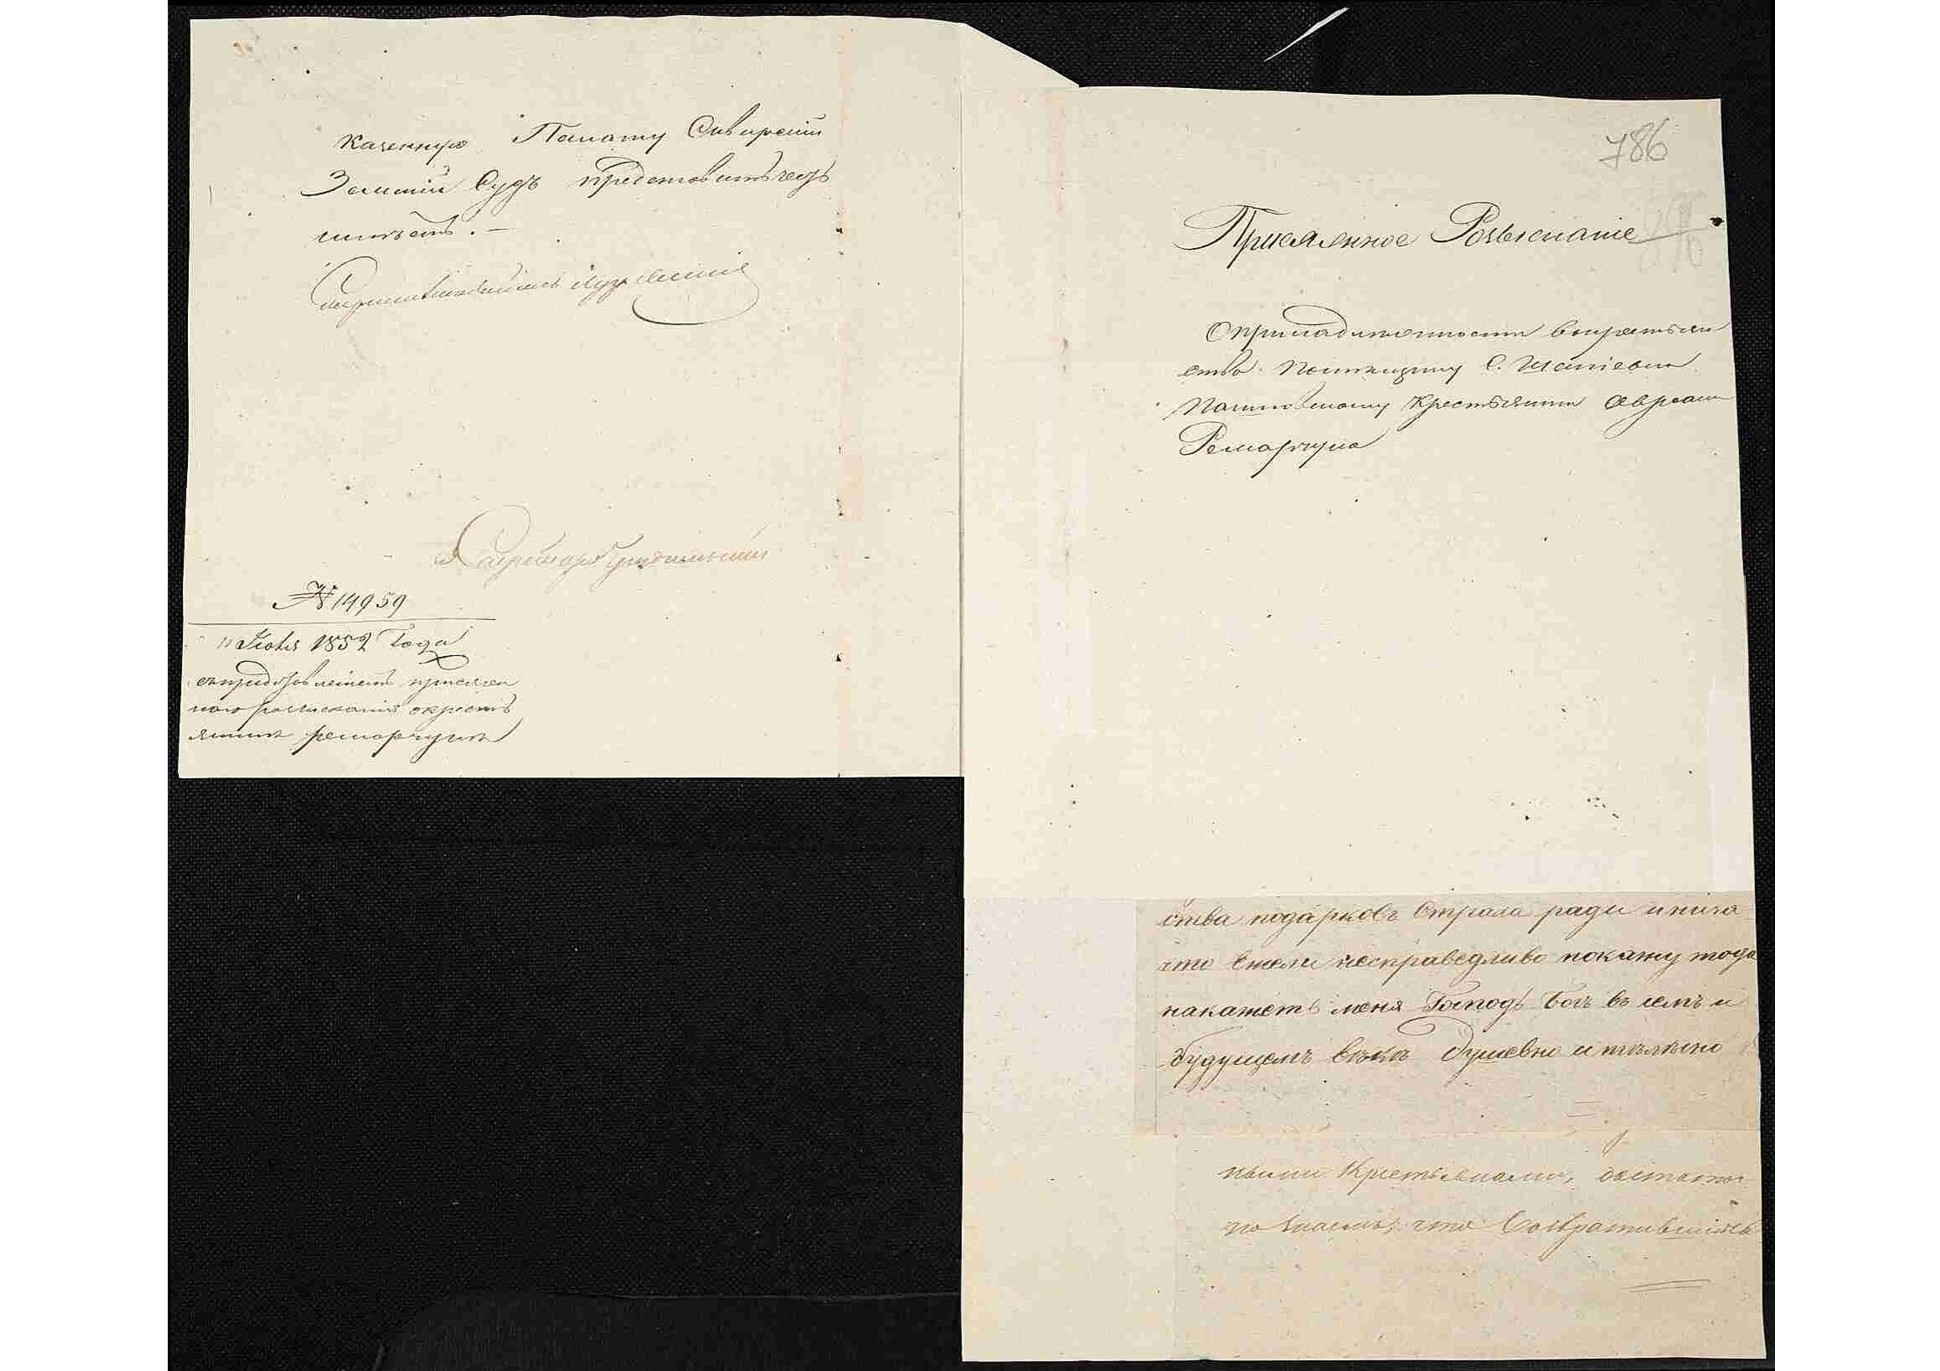 казенную Палату Сквирскій
Земскій Судъ представить честь
имѣетъ. —
Секретарь
№ 14959
11 Іюля 1852 Года
съ представленіемъ присяж
ного розысканія о крестъ
янинѣ Ремарчукѣ
786
Присяжное Розысканіе
О принадлежности
ству помещику С.
Крестьянина Авраама
Ремарчука
ства подарковъ страха ради и ниже
что ежели несправедливо покажу тогда
накажетъ меня Господь Богъ въ семъ и
будущемъ вѣкѣ душевно и тѣлесно
ными Крестьянами, достаточ
но знаемъ, что Возвратившійся